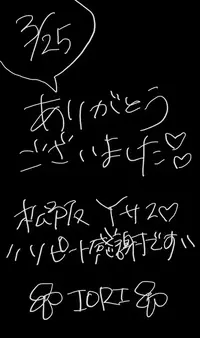 3/25
ありがとう
ございました♡
松阪 Yサス♡
リピート感謝です
IORI